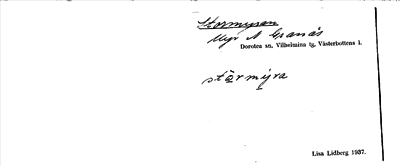 Stormyran
Myr N Granås
Dorotea sn, Vilhelmina tg, Västerbottens l.
stōrmýra
Lisa Lidberg 1937.